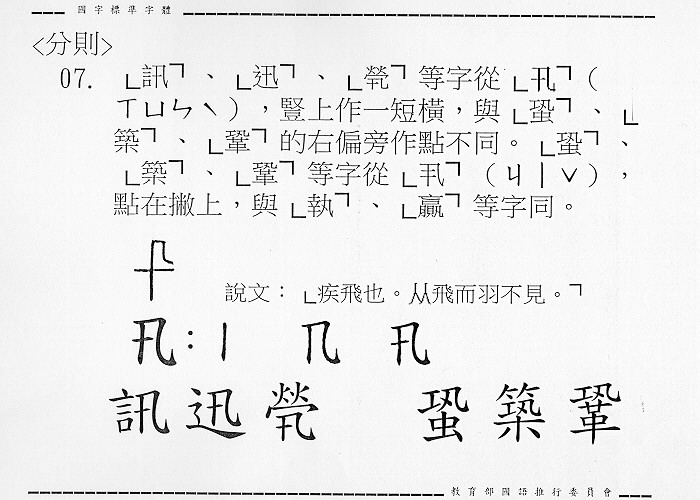 國字標準字體
<分則>
07. ﹂訊﹁、﹂迅﹁、﹂煢﹁等字從﹂卂﹁(
ㄒㄩㄣˋ),豎上作一短橫,與﹂蛩﹁、﹂
築﹁、﹂鞏﹁的右偏旁作點不同。﹂蛩﹁、
﹂築﹁、﹂鞏﹁等字從﹂丮﹁(ㄐㄧˇ),
點在撇上,與﹂執﹁、﹂贏﹁等字同。
說文:﹂疾飛也。从飛而羽不見。﹁
卂:丨 ⺄ 卂
訊 迅 煢 蛩 築 鞏
教育部國語推行委員會